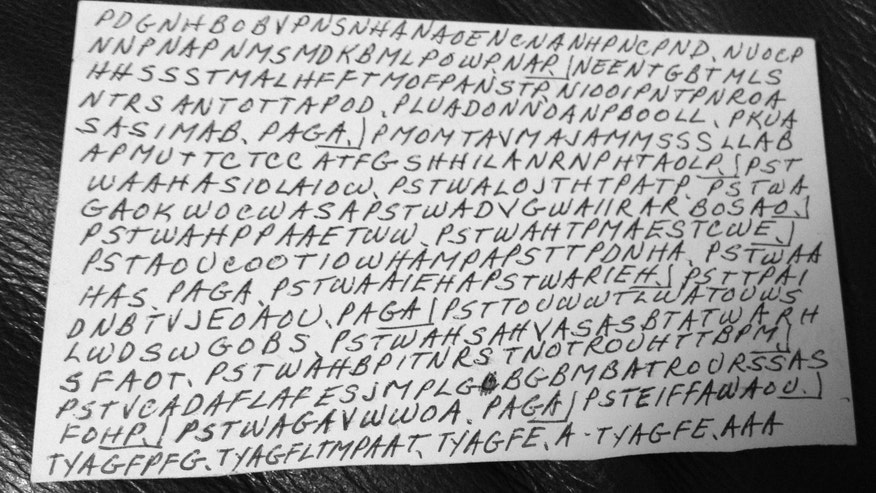 PDGNHBOBVPNSNHANAOENCNANHPNCPND, NUOCP
NNPNAPNMSMDKBMLPOWP, NAP, NEENTGBTMLS
HHSSSTMALHFFTMOFPANSTP, NIOOIPNTPNROA
NTRSANTOTTAPOD, PLUADONNOANPBOOLL, PKUA
SASIMAB, PAGA, PMOMTAVMAJAMMSSSLLAB
APMUTTCTCC ATFGSHHILANRNPHTAOLP, PST
WAAHASIOLAIOW, PSTWALOJTHTPATP, PSTWA
GAOKWOCWASAPSTWADVGWAIIRARBOSAO,
PSTWAHPPAAETWW, PSTWAHTPMAESTCWE,
PSTAOUCOOTIOWHAMPAPSTTPDNHA, PSTWAA
HAS, PAGA, PSTWAAIEHAPSTWARIEH, PSTTPAI
DNBTVJEOAOU, PAGA, PSTTOUWWTLWATOUWS
LWDSWGOBS, PSTWAHSAHVASASBTATWARH
SFAOT, PSTWAHBPITNRSTNOTROUHTTBPM
PSTVCADAFLAFESJMPLGBGBMBATROURSSAS
FOHP, PSTWAGAVWWOA, PAGA, PSTEIFFAWAOU,
TYAGFPFG, TYAGFLTMPAAT, TYAGFE, A-TYAGFE, AAA